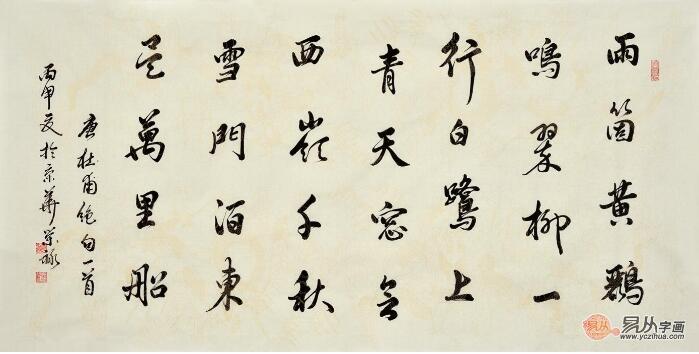 兩箇黃鸝
鳴翠柳一
行白鷺上
青天窓含
西嶺千秋
雪門泊東
吴萬里船
唐杜甫絶句一首
丙申夏於京華
易从字画
www.yczihua.com